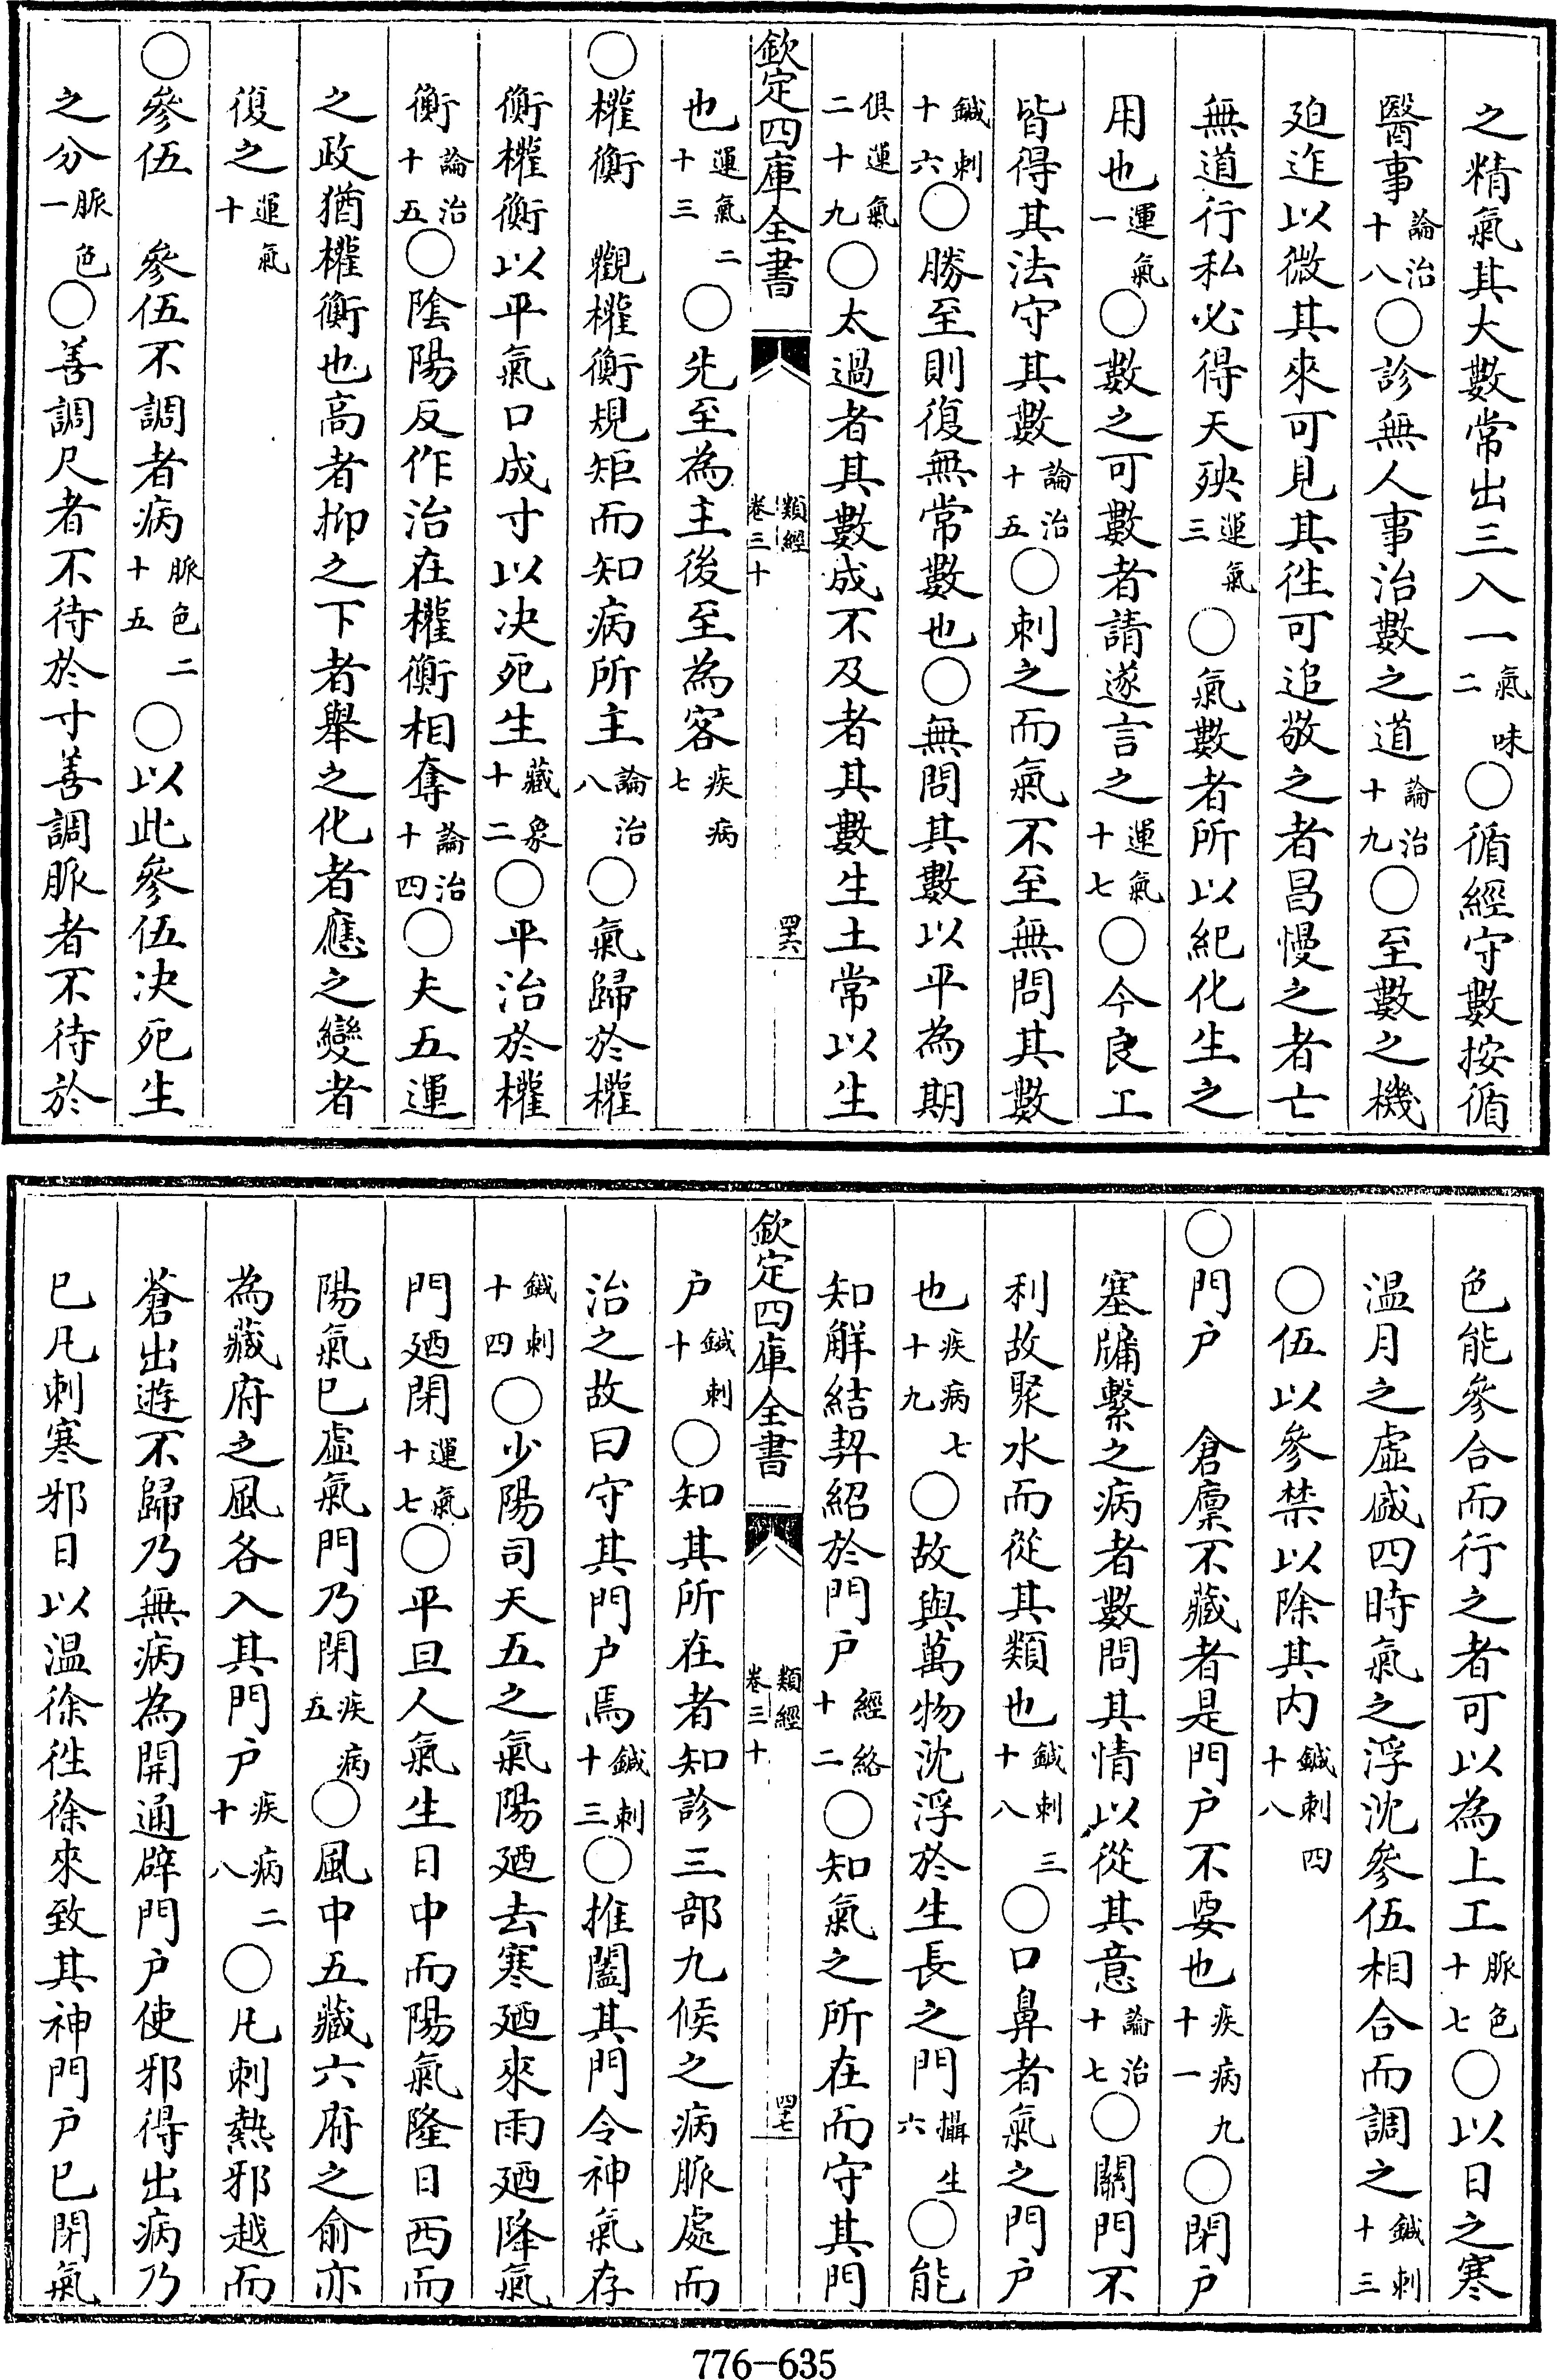 之精氣其大數常出三入一氣味二○循經守數按循
醫事論治十八○診無人事治數之道論治十九○至數之機
廹迮以微其來可見其徃可追敬之者昌慢之者亡
無道行私必得天殃運氣三○氣數者所以紀化生之
用也運氣一○數之可數者請遂言之運氣十七○今良工
皆得其法守其數論治十五○刺之而氣不至無問其數
鍼刺十六○勝至則復無常數也○無問其數以平為期
俱運氣二十九○太過者其數成不及者其數生土常以生
欽定四庫全書 類經 卷三十 四六
也運氣二十三○先至為主後至為客疾病七
○權衡 觀權衡規矩而知病所主論治八○氣歸於權
衡權衡以平氣口成寸以決死生藏象十二○平治於權
衡論治十五○陰陽反作治在權衡相奪論治十四○夫五運
之政猶權衡也高者抑之下者舉之化者應之變者
復之運氣十
○參伍 參伍不調者病脈色二十五○以此參伍決死生
之分脈色一○善調尺者不待於寸善調脈者不待於
色能參合而行之者可以為上工脈色十七○以日之寒
温月之虛盛四時氣之浮沈參伍相合而調之鍼刺十三
○伍以參禁以除其内鍼刺四十八
○門户 倉廩不藏者是門户不要也疾病九十一○閉户
塞牖繫之病者數問其情以從其意論治十七○關門不
利故聚水而從其類也鍼刺三十八○口鼻者氣之門户
也疾病七十九○故與萬物沈浮於生長之門攝生六○能
知解結契紹於門户經絡十二○知氣之所在而守其門
欽定四庫全書 類經 卷三十 四七
户鍼刺十○知其所在者知診三部九候之病脈處而
治之故曰守其門户焉鍼刺十三○推闔其門令神氣存
鍼刺十四○少陽司天五之氣陽廼去寒廼來雨廼降氣
門廼閉運氣十七○平旦人氣生日中而陽氣隆日西而
陽氣已虛氣門乃閉疾病五○風中五藏六府之俞亦
為藏府之風各入其門户疾病二十八○凡刺熱邪越而
蒼出遊不歸乃無病為開通辟門户使邪得出病乃
已凡刺寒邪日以温徐徃徐來致其神門户已閉氣
776-635